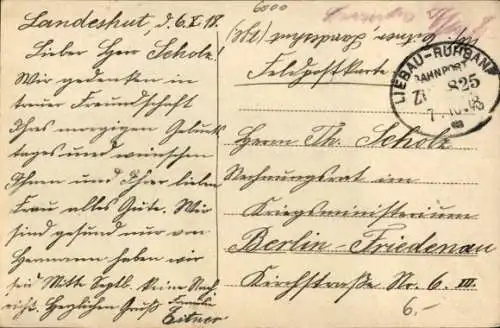 Landeshut, d. 6.X.18.
Lieber Herr Scholz.
Wir gedenken in
treuer Freundschaft
Ihres morgigen Geburts
tages und wünschen
Ihnen und Ihrer lieben
Frau alles Gute. Wir
sind gesund nur von
Hermann haben wir
seit Mitte Septb. keine Nach
richt. Herzlichen Gruß Familie
Eitner
6000
Feldpostkarte
LIEBAU-RUHBANK
BAHNPOST
ZUG 825
Herrn Th. Scholz
Rechnungsrat im
Kriegsministerium
Berlin-Friedenau
Kirchstraße Nr. 6 III.
6.-